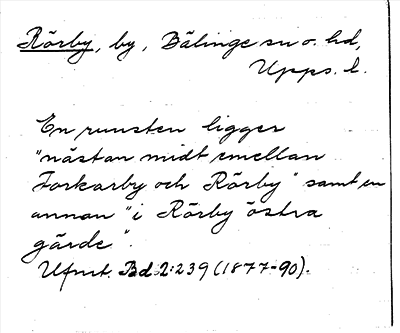 Rörby, by, Bälinge sn o. hd,
Upps. l.
En runsten ligger
"nästan midt emellan
Forkarby och Rörby" samt en
annan "i Rörby östra
gärde".
Ufmt. Bd 2:239 (1877-90).